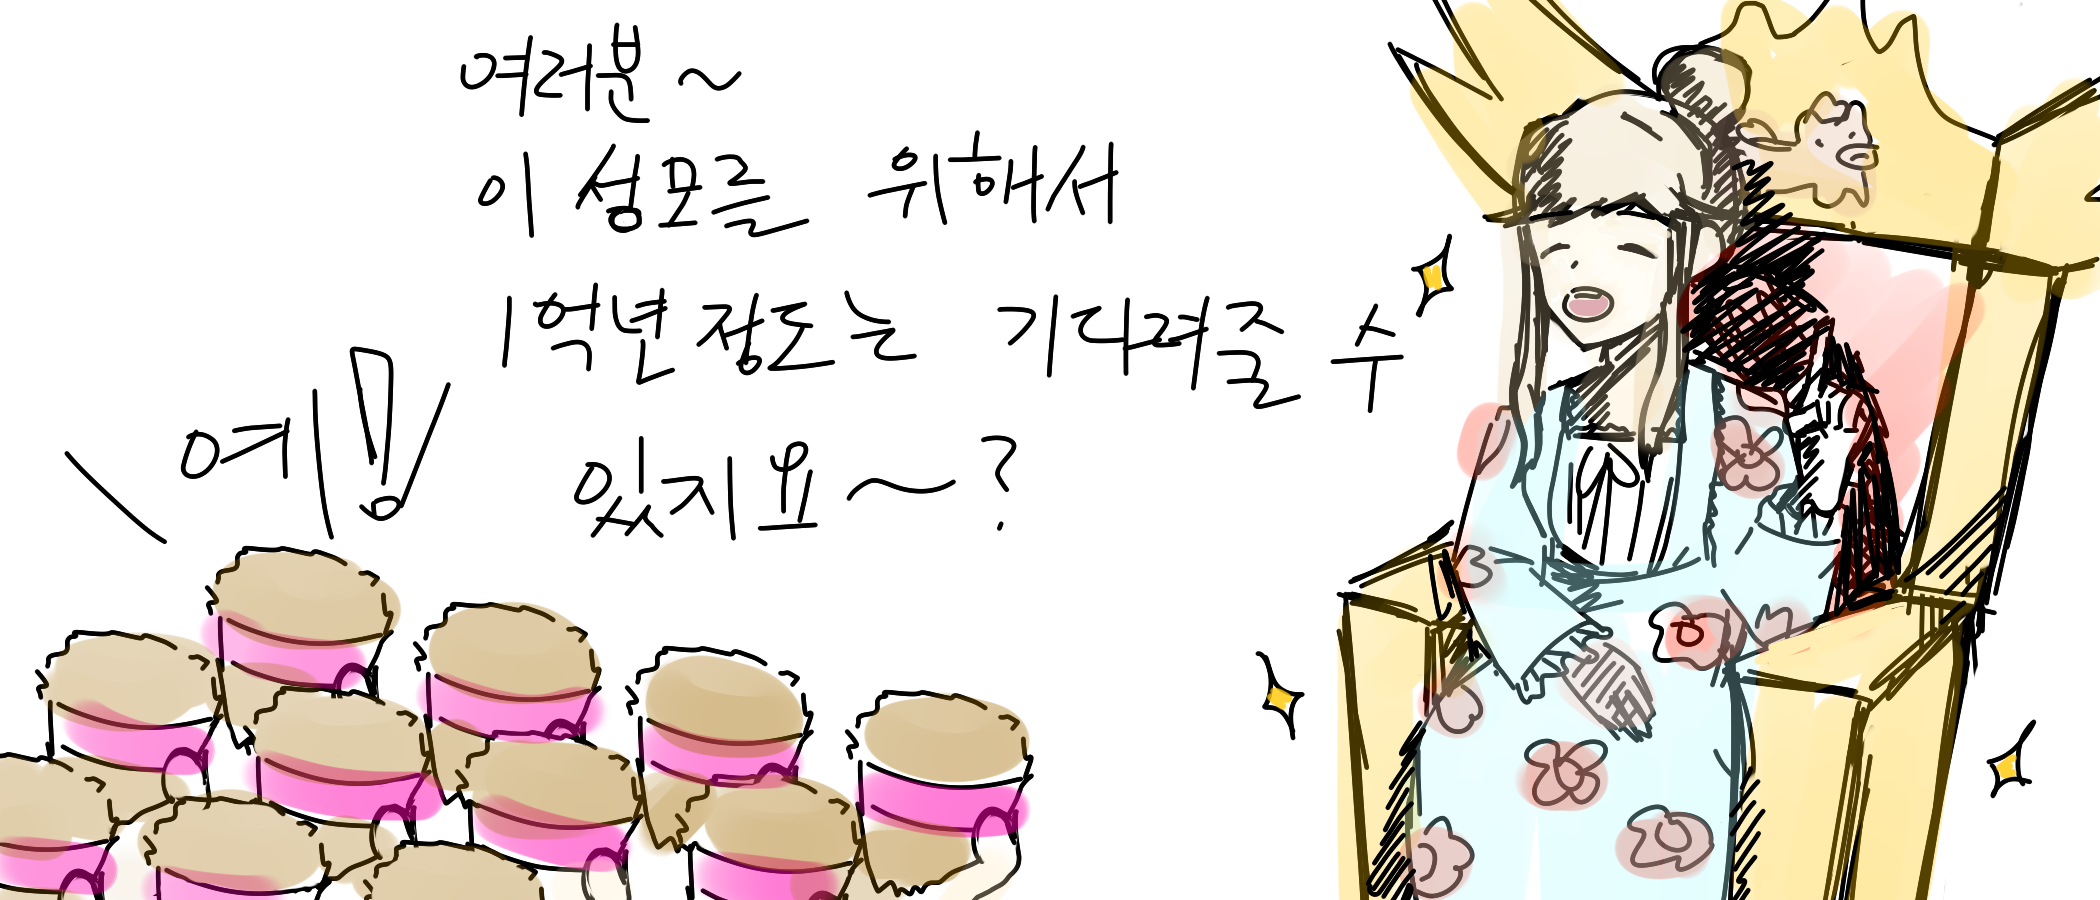 여러분~
이 성모를 위해서
1억년 정도는 기다려줄 수
있지요~?
예!